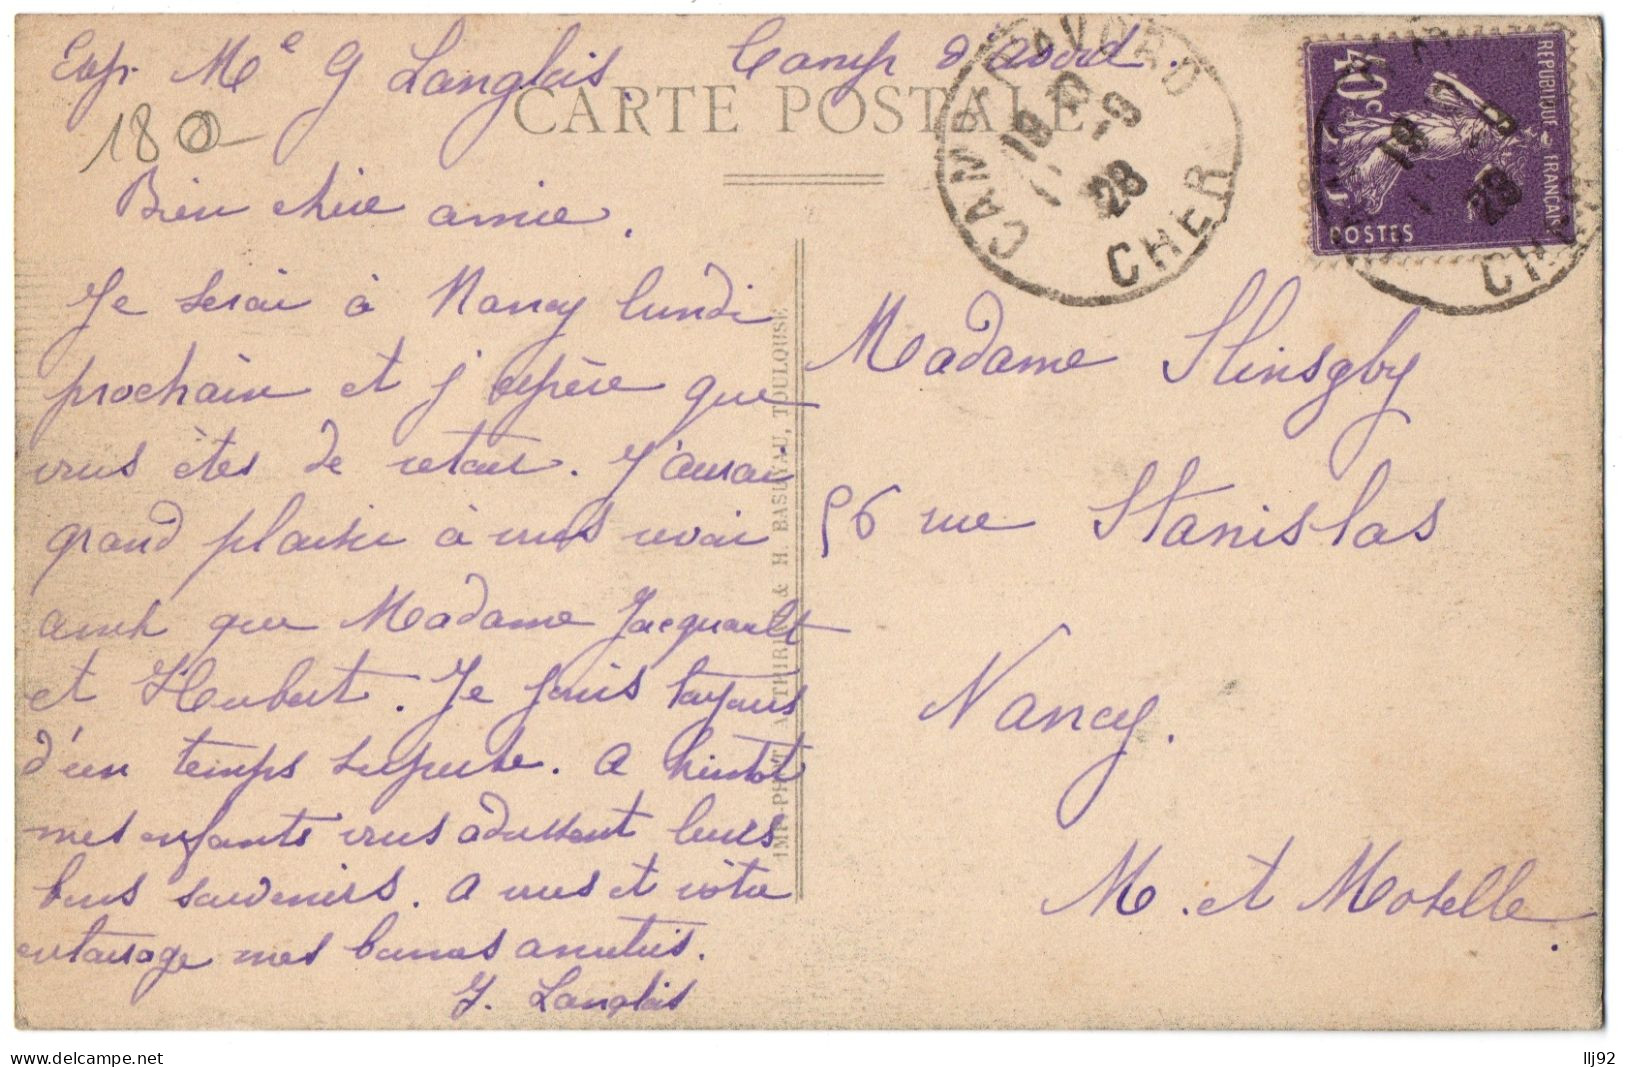 Exp. Me G Langlais. Camp d'Avord.
CARTE POSTALE
180
Bien chère amie.
Je serai à Nancy lundi
prochain et j'espère que
vous êtes de retour. J'aurai
grand plaisir à vous revoir
ainsi que Madame Jacquault
et Hubert. Je jouis toujours
d'un temps superbe. A bientôt
mes enfants vous adressent leurs
bons souvenirs. A vous et votre
entourage mes bonnes amitiés.
G. Langlais
IMP-PHOT. A. THIRIAT & H. BASUYAU, TOULOUSE
CAMP D'AVORD
18 30
1 -9
28
CHER
REPUBLIQUE FRANÇAISE
40c
POSTES
18
-9
28
CHER
Madame Slinsgby
56 rue Stanislas
Nancy.
M. et Moselle.
llj92